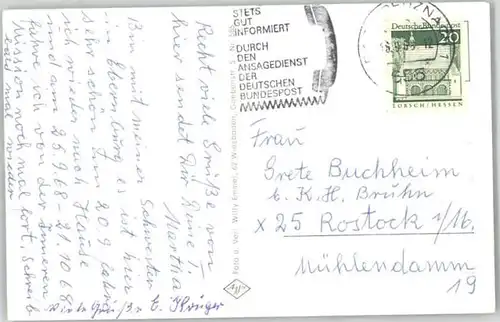 STETS
GUT
INFORMIERT
DURCH
DEN
ANSAGEDIENST
DER
DEUTSCHEN
BUNDESPOST
Deutsche Bundespost
20
LORSCH / HESSEN
Recht viele Grüße von
hier sendet Dir Deine T. Martha
Bin mit meiner Schwester
in Ebernburg es ist hier
sehr schön Am 20 9 fahre
ich wieder nach Hause
und am 25.9.68 - 21.10.68
fahre ich von der Inneren
Mission noch mal fort. Schreib
bald mal wieder
Viele Grüße E. Krüger
Foto u. Verl.
Wiesbaden,
Frau
Grete Buchheim
b. K. H. Bruhn
x 25 Rostock 1/M.
Mühlendamm
19